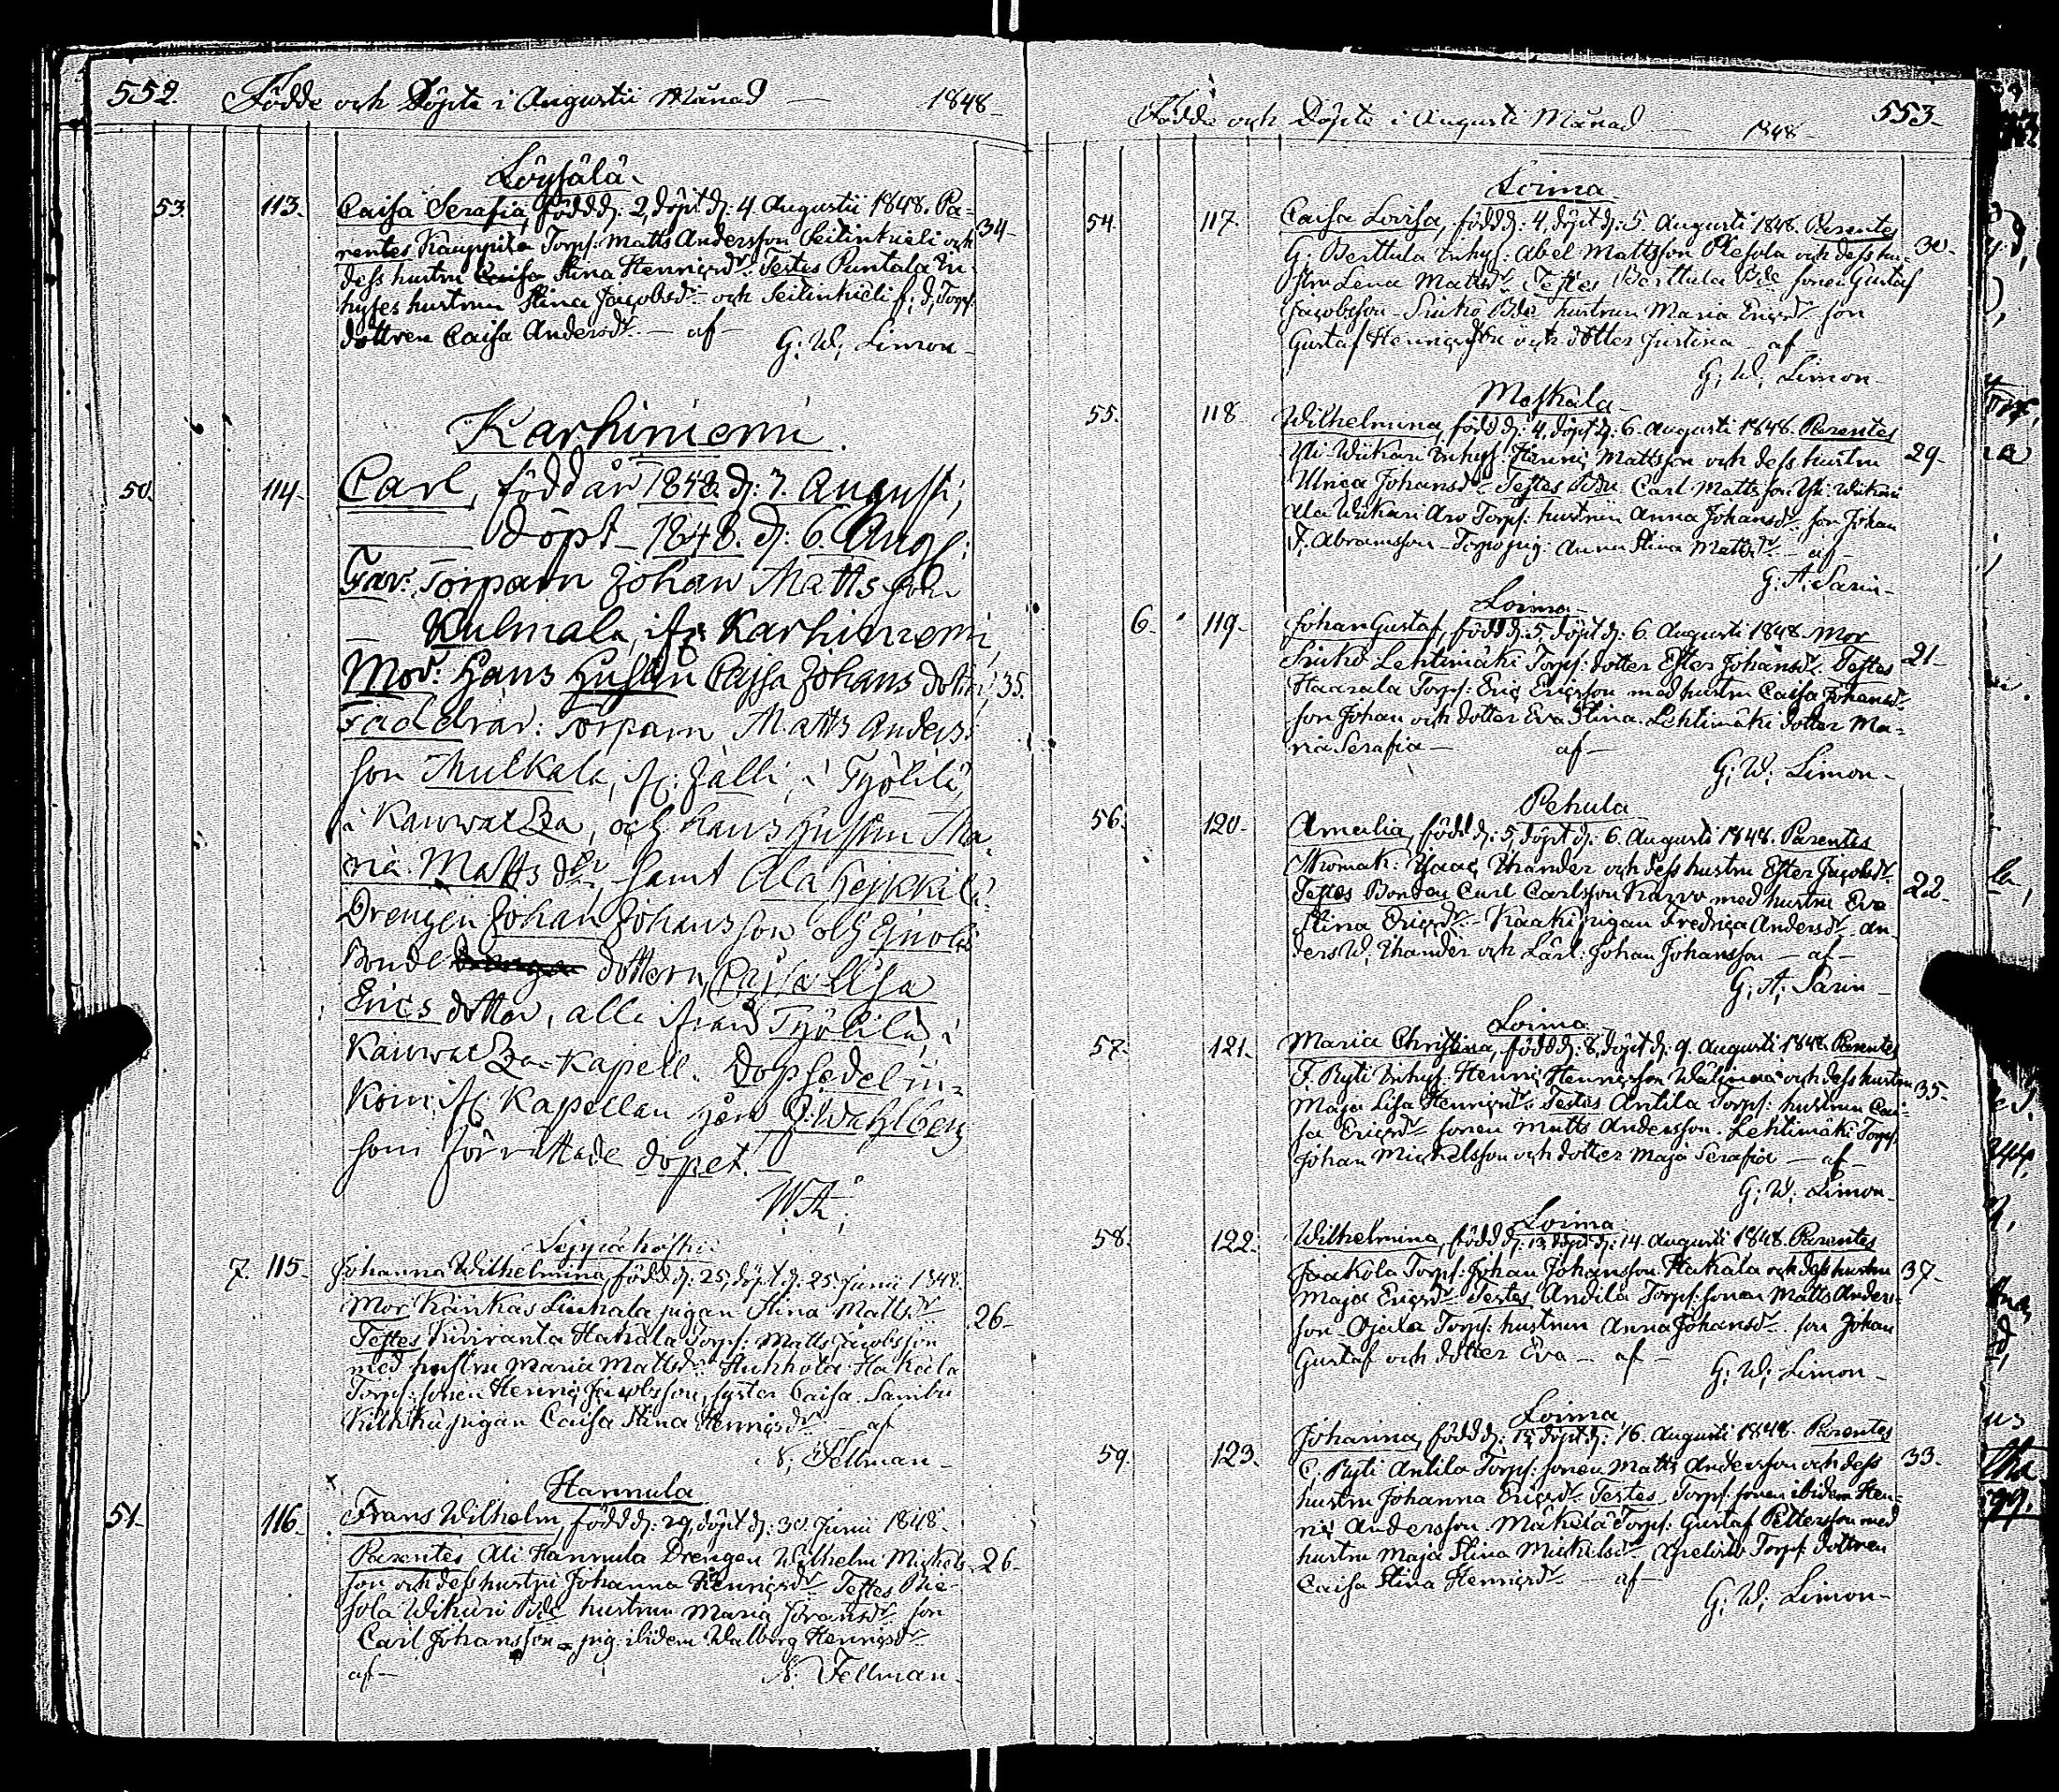 552. Födde och Döpte i Augustii Månad — 1848
Löysälä
53. 113. Caisa Serafia, född d: 2, döpt d: 4 Augustii 1848. Pa=
rentes Kauppila Torp: Matts Andersson Seilinkieli och 34
dess hustru Caisa Stina Henricsdr. Testes Puntala In
hyses hustrun Stina Jacobsdr. och Seilinkieli f. d. Torp.
dottren Caisa Andersdr. — af —
G. W. Limon
Karhiniemi.
50. 114. Carl, född år 1848. d: 3. Augusti,
döpt 1848. d: 6. Aug:
Far: Torparn Johan Matts son
Kulmala, ifr: Karhiniemi,
Mor: Hans Hustru Cajsa Johans dotter, 35.
Faddrar: Torparn Matts Anders
son Mulkala, ifr: Jalli, i Työlilä,
i Kauwatza, och hans hustru Ma
ria Matts dr, samt Ala Heikkilä
Drengen Johan Johans son och
Bonde dottern, Cajsa Lisa
Erics dotter, alla ifrån Työlilä, i
Kauwatza Kapell. Dopsedel in=
kom ifr: Kapellan Herr Wahlberg
som förrättade dopet.
Leppäkoski
7. 115. Johanna Wilhelmina, född d: 25, döpt d: 25 Junii 1848.
Mor Känkas Liuhala pigan Stina Mattsdr 26
Testes Kiviranta Hakala Torp: Matts Jacobsson
med hustru Maria Mattsdr. Huhhola Hakala
Torp: sonen Henric Jacobsson, syster Caisa. Sambu
Kilkku pigan Caisa Stina Henricsdr. af
N. Fellman
Hannula
51. 116. Frans Wilhelm, född d: 29, döpt d: 30 Junii 1848.
Parentes Ali Hannula Drengen Wilhelm Mickels= 26
son och dess hustru Johanna Henricsdr. Testes Ple=
sola Wikuri Bde hustrun Maria Göransdr. son
Carl Johansson — pig. ibidem Walborg Henricsdr
af — N. Fellman
Födde och Döpte i Augusti Månad — 1848 — 553
Loima
54. 117. Caisa Lovisa, född d: 4, döpt d: 5. Augusti 1848. Parentes
G. Berttula Inhys: Abel Mattsson Plesola och dess hu= 30
stru Lena Mattsdr. Testes Berttula Bde sonen Gustaf
Jacobsson — Siuko Bde hustrun Maria Ericsdr son
Gustaf Henricsson och dotter Justina — af
G. W. Limon
Metskala
55. 118. Wilhelmina, född d: 4, döpt d: 6. Augusti 1848. Parentes
Yli Wiikari Inhys: Henric Mattsson och dess hustru 29
Ulrica Johansdr. Testes Bden Carl Mattsson Yli Wiikari
Ala Wiikari Aro Torps: hustrun Anna Johansdr. son Johan
F. Abramsson — Torp pig: Anna Stina Mattsdr. — af —
G. A. Sarin
Loima
6. 119. Johan Gustaf, född d: 5, döpt d: 6. Augusti 1848. Mor
Siuko Lehtimäki Torps: dotter Ester Johansdr. Testes 21
Haarala Torp: Eric Ericsson med hustru Caisa Johansdr.
son Johan och dotter Eva Stina. Lehtimäki dotter Ma=
ria Serafia — af —
G. W. Limon
Pehula
56. 120. Amalia, född d: 5, döpt d: 6. Augusti 1848. Parentes
Skomak: Isaac Thander och dess hustru Ester Jacobsdr.
Testes Bonden Carl Carlsson Karvo med hustru Eva 22
Stina Ericsdr. — Kaaki pigan Fredrica Andersdr. An=
ders W. Thander och Lärl: Johan Johansson — af —
G. A. Sarin
Loima
57. 121. Maria Christina, född d: 8, döpt d: 9. Augusti 1848. Parentes
F. Ryti Inhys: Henric Henricsson och dess hustru 35
Maja Lisa Henricsdr. Testes Antila Torps: hustrun Cai=
sa Ericsdr. sonen Matts Andersson. Lehtimäki Torp:
Johan Mickelsson och dotter Maja Serafia — af —
G. W. Limon
Loima
58. 122. Wilhelmina, född d: 13, döpt d: 14. Augusti 1848. Parentes
Jaakola Torp: Johan Johansson Hakala och dess hustru 37
Maja Ericsdr. Testes Andila Torps: sonen Matts Anders=
son — Ojala Torps: hustrun Anna Johansdr. son Johan
Gustaf och dotter Eva — af —
G. W. Limon
Loima
59. 123. Johanna, född d: 15, döpt d: 16. Augusti 1848. Parentes
C. Ryti Antila Torps: sonen Matts Andersson och dess 33
hustru Johanna Ericsdr. Testes Torps: sonen ibidem Hen=
ric Andersson. Mäkelä Torp: Gustaf Pettersson med
hustru Maja Stina Mickelsdr. Torps dottren
Caisa Stina Henricsdr. — af —
G. W. Limon